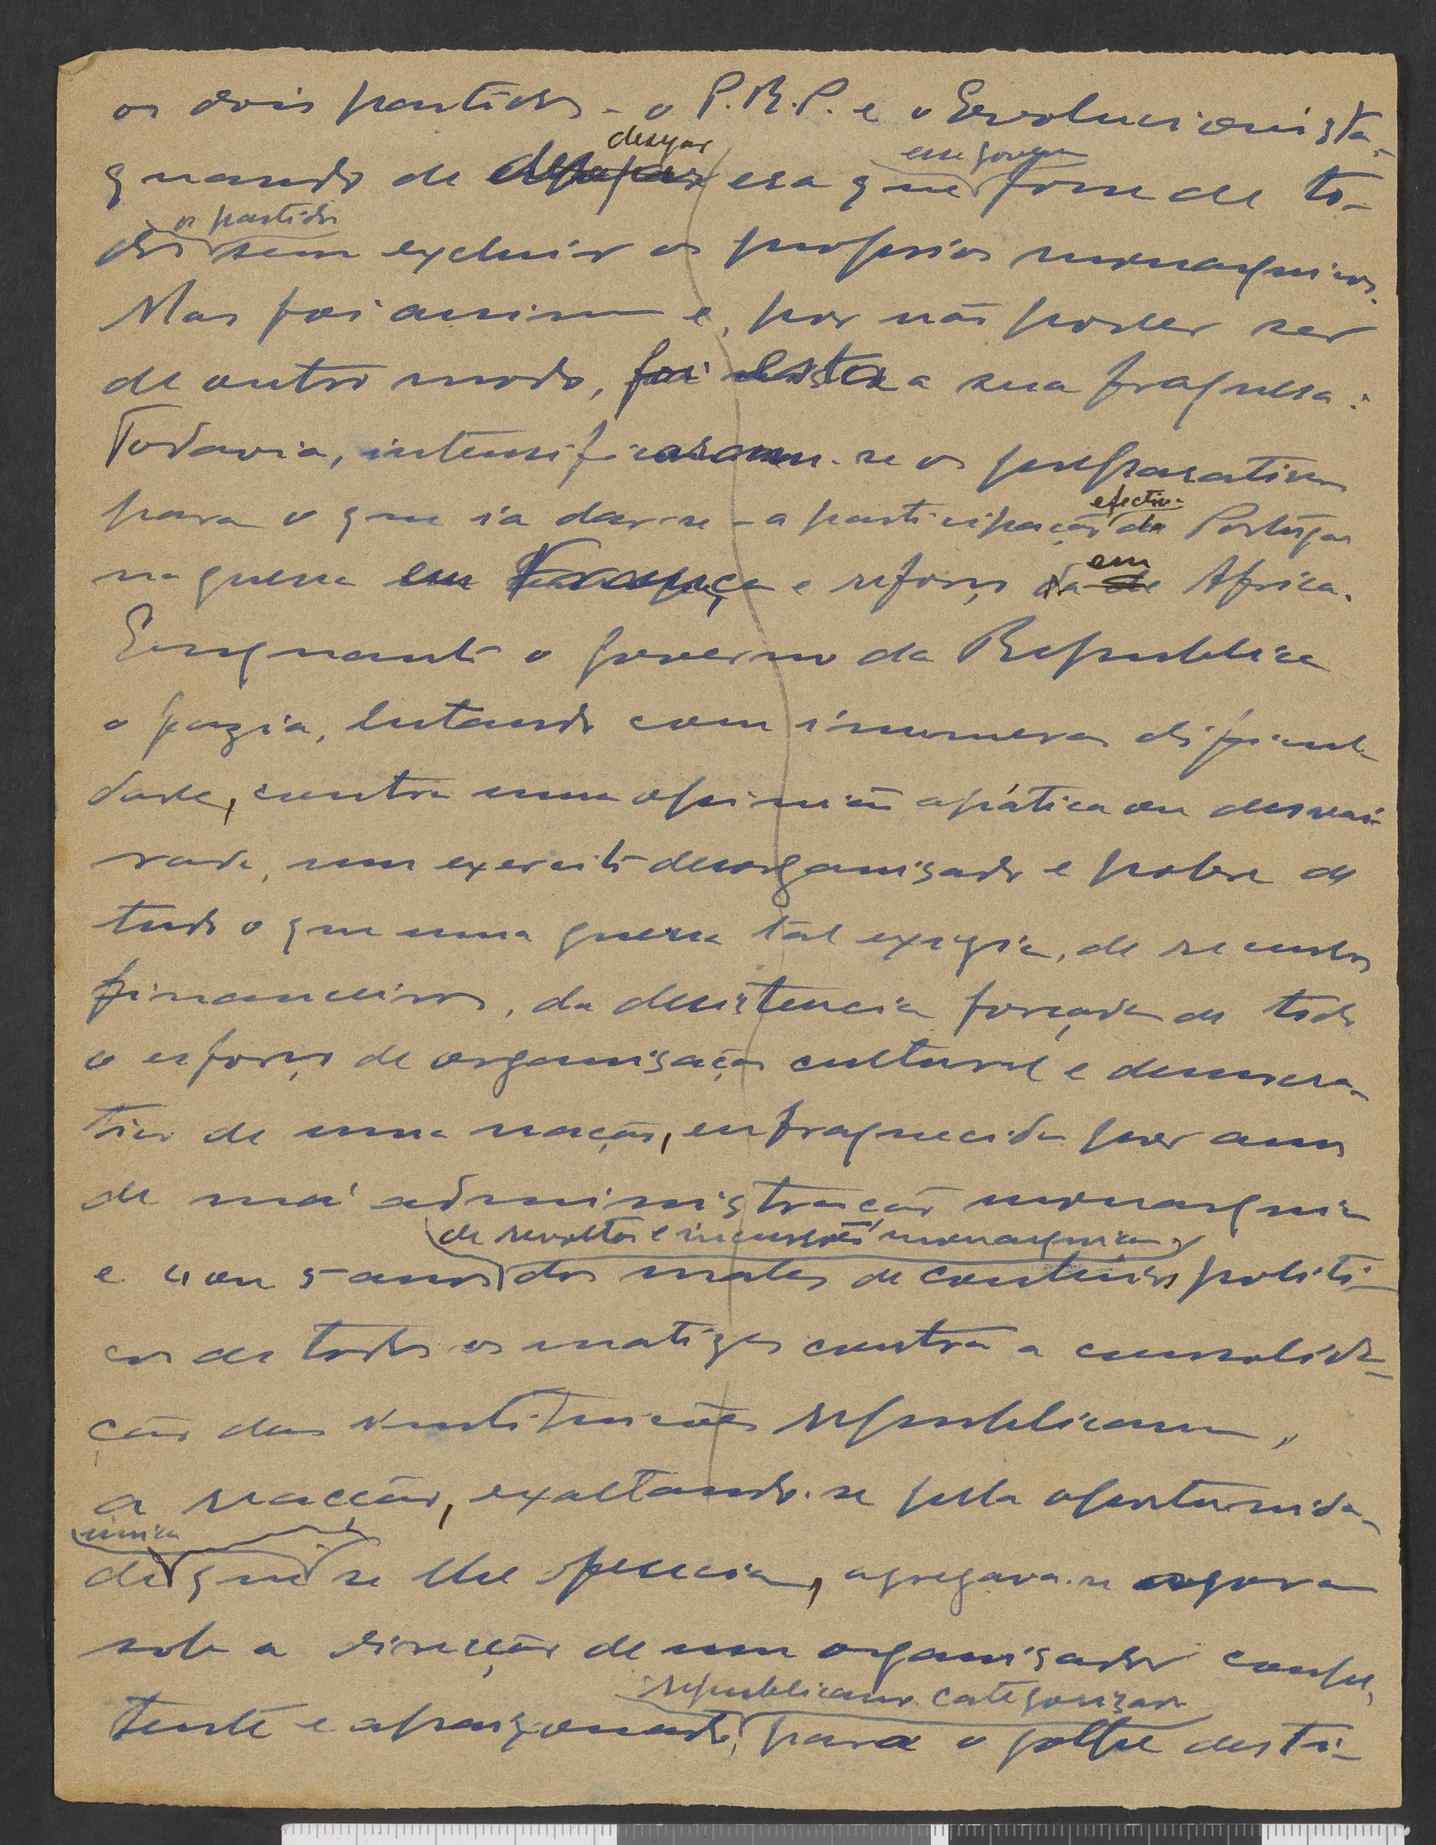 os dois partidos - o P.R.P. e o Evolucionista -
desejar
esse governo
quando de desejar era que fosse de to-
os partidos
dos sem excluir os proprios monarquicos.
Mas foi assim e, por não poder ser
de outro modo, foi esta a sua fraquesa.
Todavia, intensificaram-se os preparativos
efectiva
para o que ia dar-se - a participação de Portugal
em
na guerra em França e reforço da de Africa.
Emquanto o governo da Republica
o fazia, lutando com inumeras dificul-
dades, contra uma opinião apática ou desvai-
rada, um exercito desorganisado e pobre de
tudo o que uma guerra tal exigia, de recursos
financeiros, da desistencia forçada de todo
o esforço de organisação cultural e democra-
tica de uma nação, enfraquecida por anos
de má administração monarquica
de revoltas e incursões monarquicas
e 4 ou 5 anos dos males de conluios politi-
cos de todos os matizes contra a consolida-
ção das instituições republicanas,
a reacção, exaltando-se pela oportunida-
unica
de que se lhe oferecia, agregava-se agora
sob a direcção de um organisador compe-
republicano categorizado
tente e apaixonado, para o golpe desti-